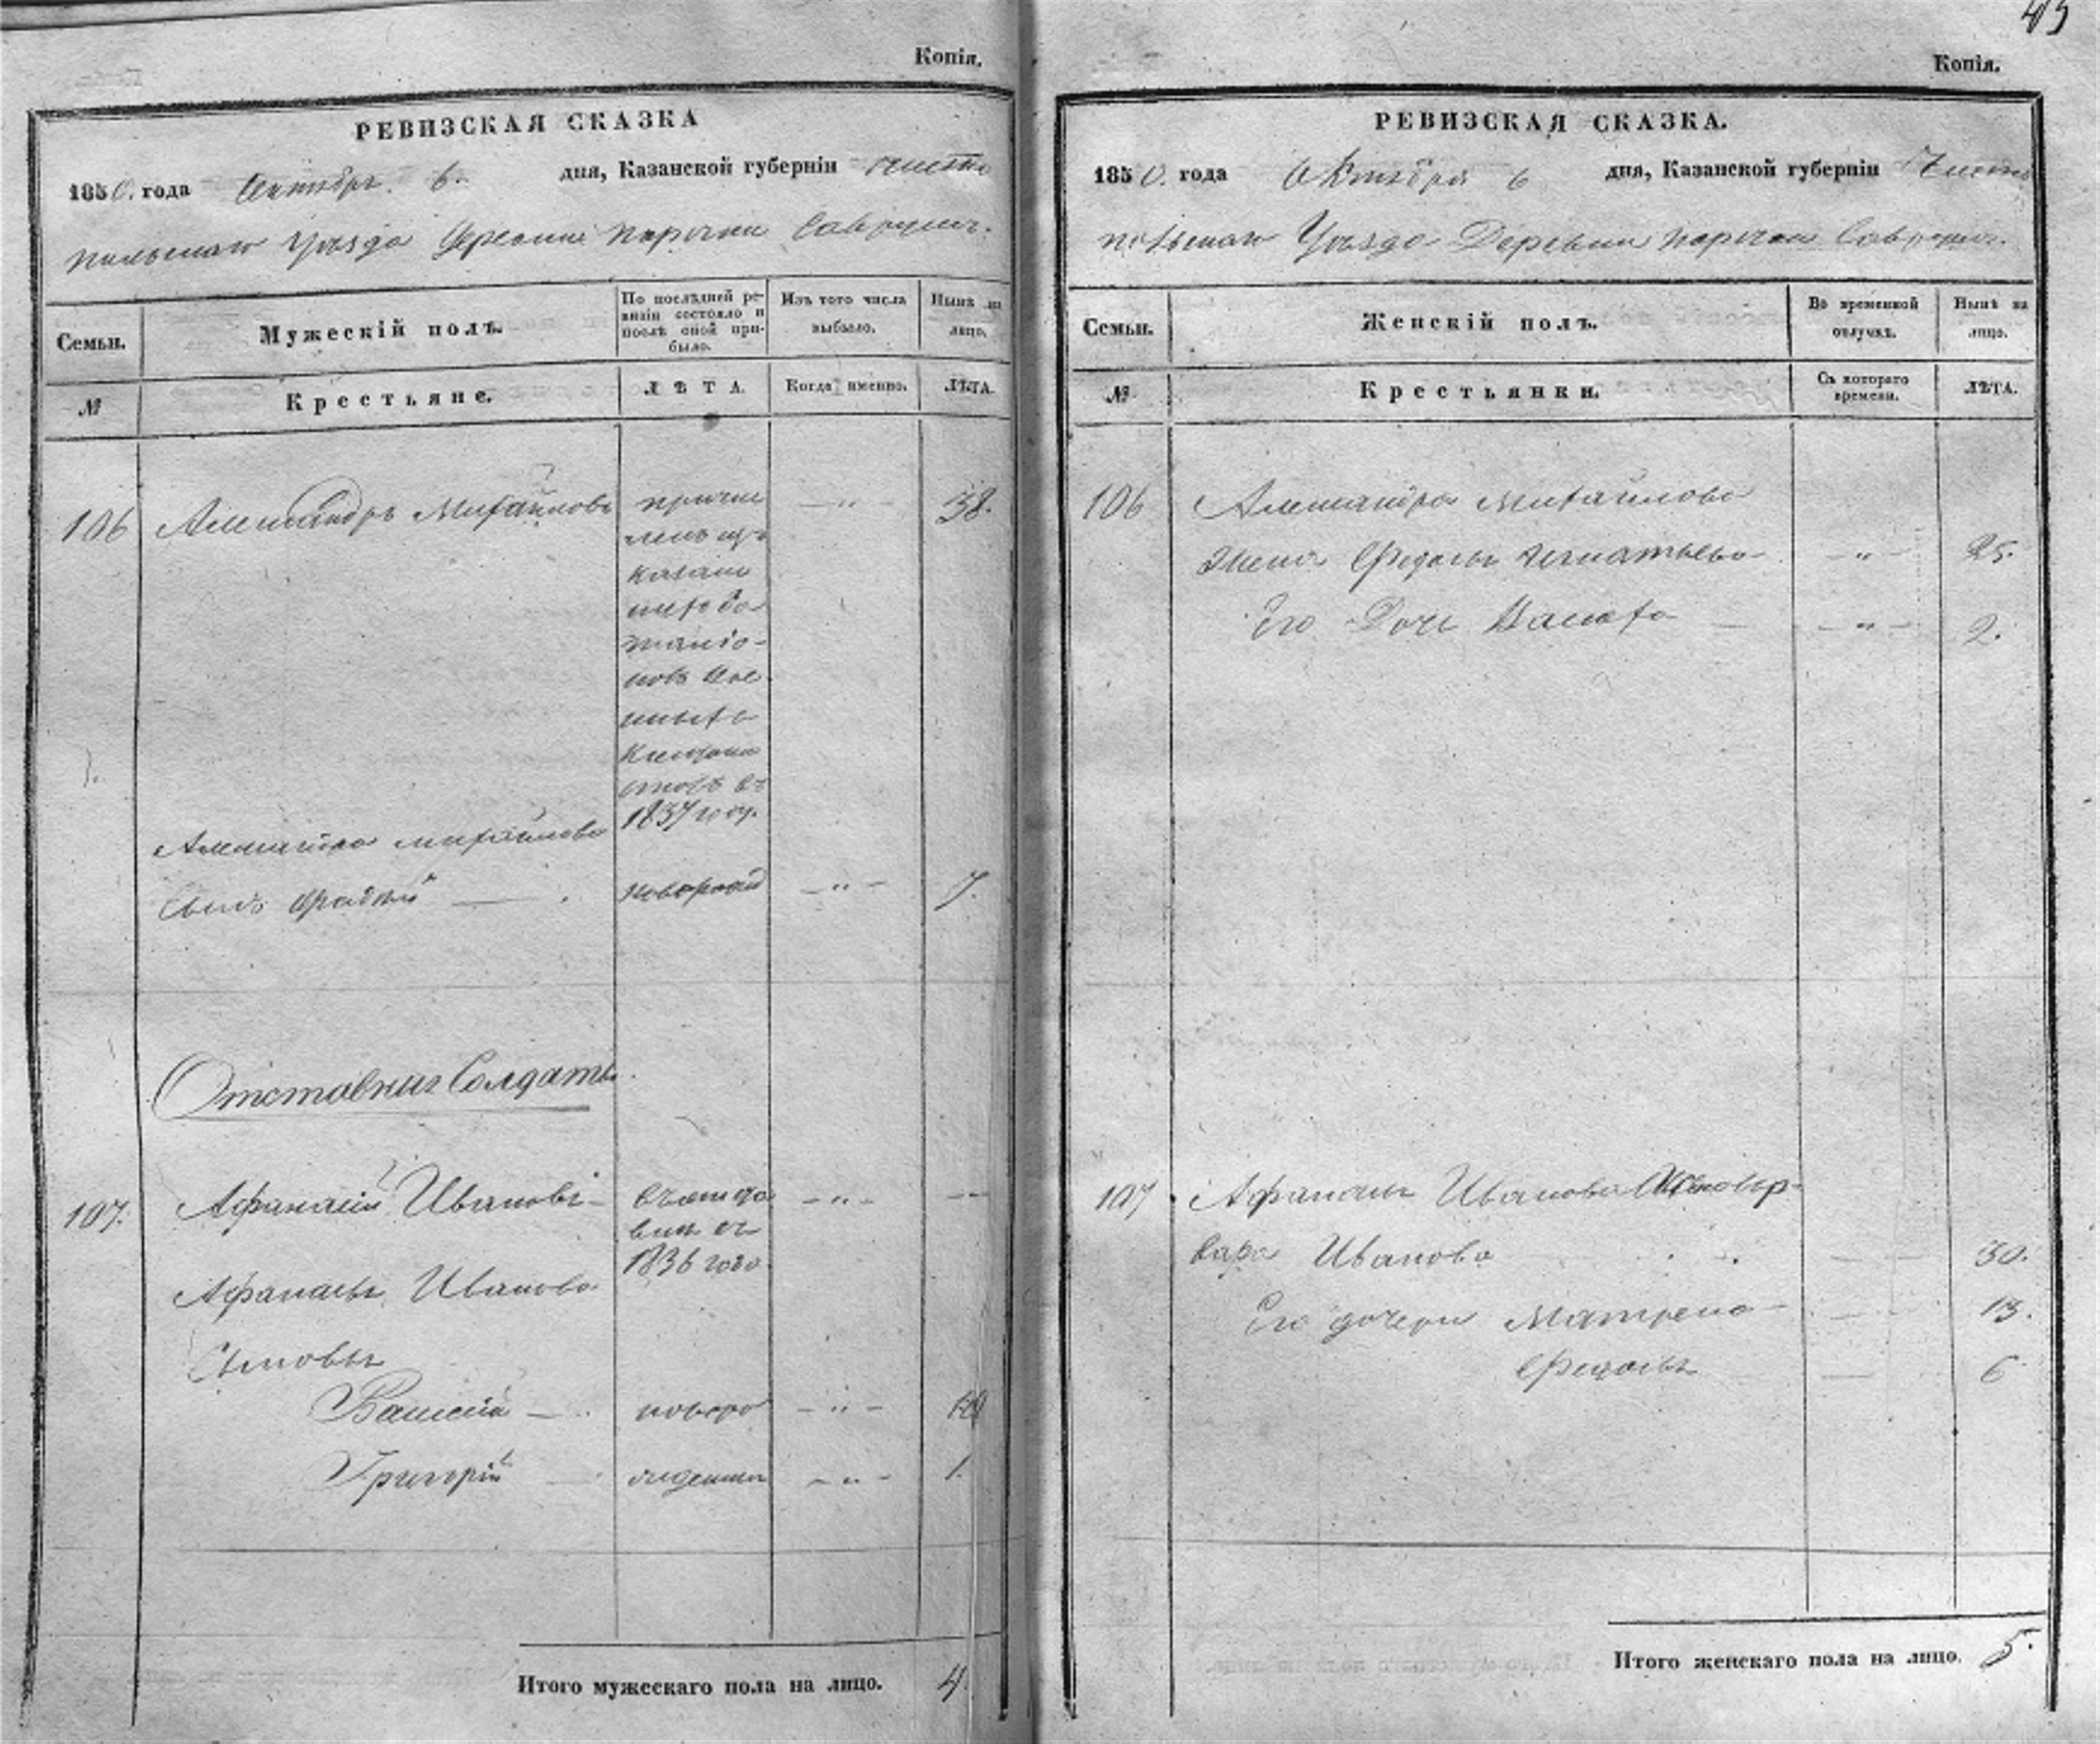 Копія.
РЕВИЗСКАЯ СКАЗКА
1850. года Октября 6. дня, Казанской губерніи Чисто
польскаго Уѣзда Деревни
Семьи.
Мужескій полъ.
По послѣдней ре-
визіи состояло и
послѣ оной при-
было.
Изъ того числа
выбыло.
Нынѣ на
лицо.
№
Крестьяне.
ЛѢТА.
Когда именно.
ЛѢТА.
106 Александръ Михайловъ
причис
ленъ изъ
казан
скихъ ба
таліо-
новъ Вое
нныхъ
Кантони
стовъ въ
1837 году.
— „ —
38.
Александра Михайлова
Сынъ
новорож
— „ —
7.
Отставныя Солдаты
107. Афанасій Ивановъ
въ
1836 года
— „ —
Афанасья Иванова
Сыновья
Василій — новоро — „ —
Григорій — жденныя — „ — 1.
Итого мужескаго пола на лицо. 4.
45
Копія.
РЕВИЗСКАЯ СКАЗКА.
1850. года Октября 6 дня, Казанской губерніи Чисто
польскаго Уѣзда Деревни
Семьи.
Женскій полъ.
Во временной
отлучкѣ.
Нынѣ на
лицо.
№
Крестьянки.
Съ котораго
времени.
ЛѢТА.
106 Александра Михайлова
жена Федосья Игнатьева — „ — 25.
Его Дочь — „ — 2.
107 Афанасья Иванова Жена Вар
вара Иванова — 30.
Его дочери Матрена — 13.
Федосья — 6
Итого женскаго пола на лицо. 5.